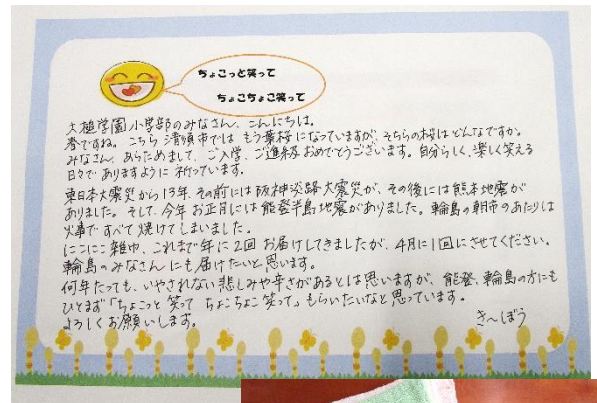 ちょこっと笑って
ちょこちょこ笑って
大槌学園小学部のみなさん、こんにちは。
春ですね。こちら清須市では もう葉桜になっていますが、そちらの桜はどんなですか。
みなさん、あらためまして、ご入学、ご進級おめでとうございます。自分らしく、楽しく笑える
日々でありますように祈っています。
東日本大震災から13年、その前には阪神淡路大震災が、その後には熊本地震が
ありました。そして、今年お正月には能登半島地震がありました。輪島の朝市のあたりは
火事ですべて焼けてしまいました。
にこにこ雑巾、これまで年に2回お届けしてきましたが、4月に1回にさせてください。
輪島のみなさんにも届けたいと思います。
何年たっても、いやされない悲しみや辛さがあるとは思いますが、能登、輪島の方にも
ひとまず「ちょこっと笑って ちょこちょこ笑って」もらいたいなと思っています。
よろしくお願いします。
き〜ぼう